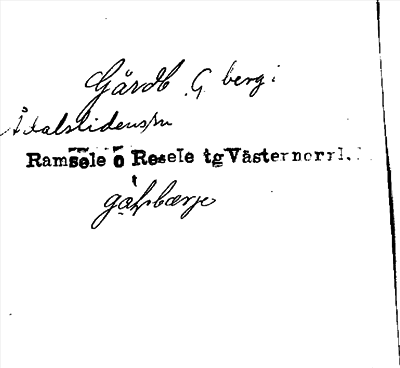 Gårdb. G. berg:
Ådalslidens sn
Ramsele o Resele tg Västernorrl.